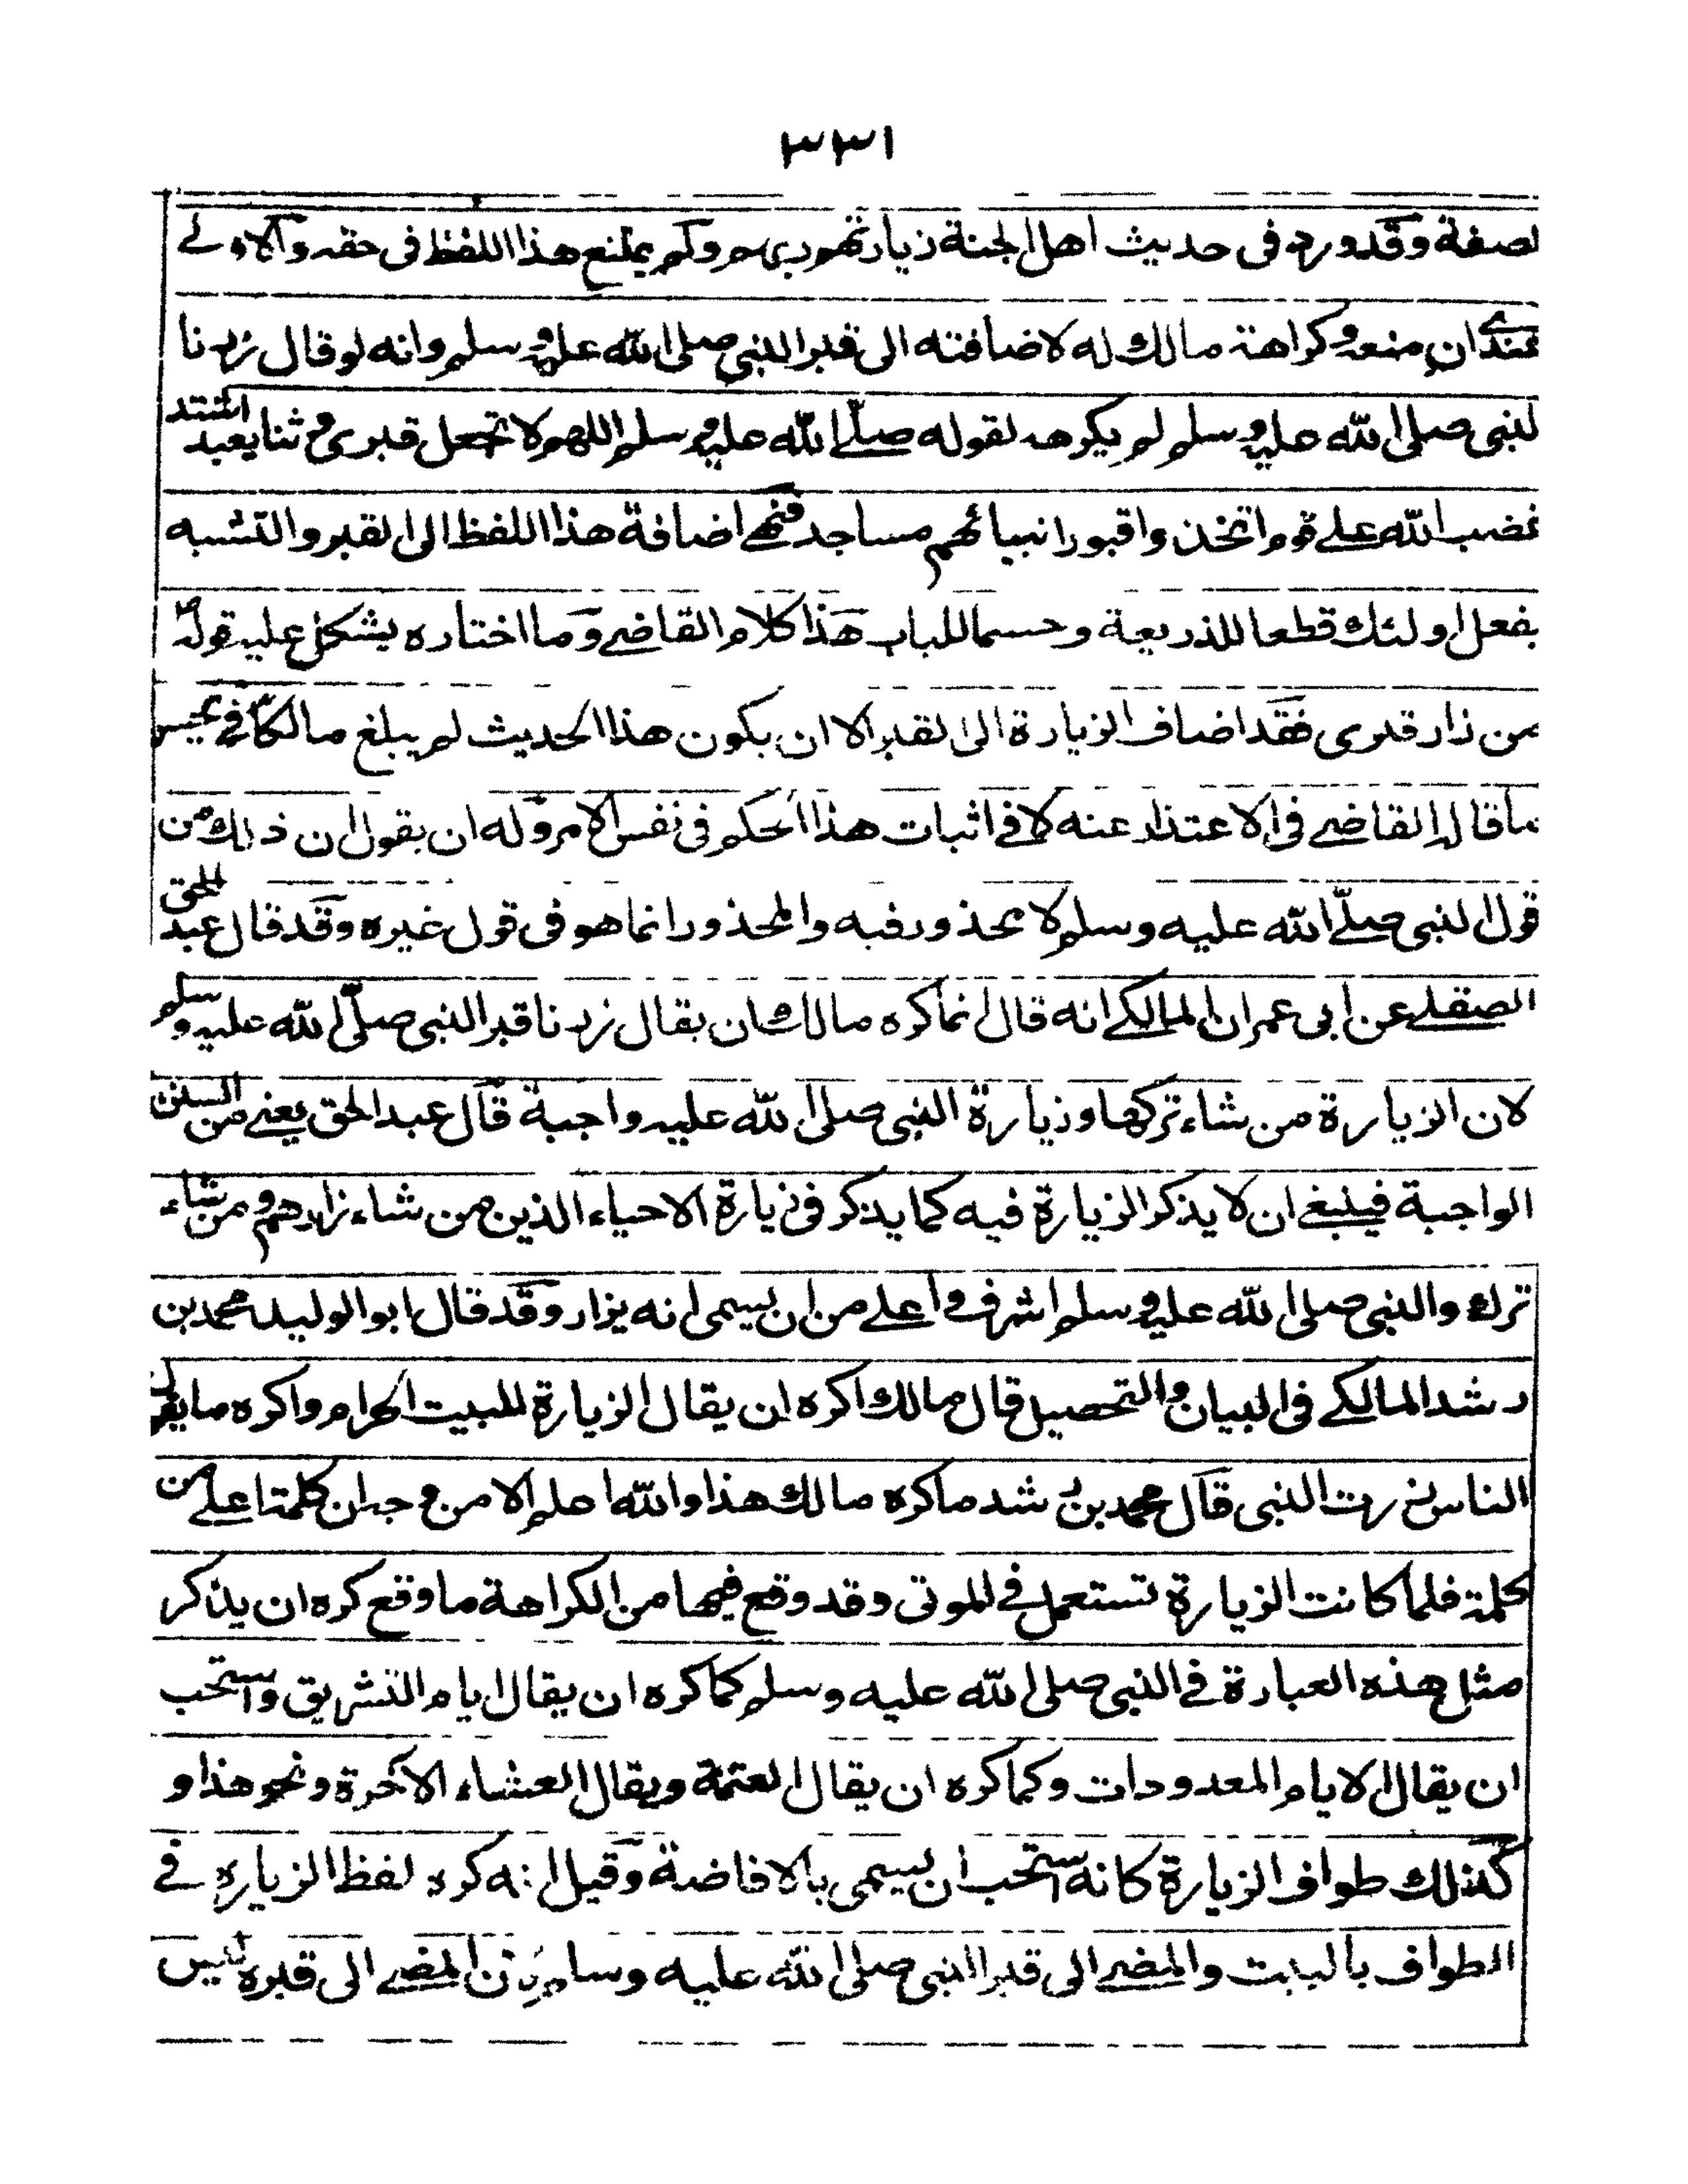 ٣٣١
لصفة وقد ورد فى حديث اهل الجنة زيارتهم ربهم ولم يمتنع هذا اللفظ فى حقه والاولے
عندى ان منعه وكراهة مالك له لاضافته الى قبر النبي صلى الله عليه وسلم وانه لو قال زرنا
لنبى صلى الله عليه وسلم لم يكرهه لقوله صلّے الله عليه وسلم اللهم لا تجعل قبرى وثنا يعبد اشتد
غضب الله علے قوم اتخذوا قبور انبيائهم مساجد فنهے اضافة هذا اللفظ الى القبر والتشبه
بفعل اولئك قطعا للذريعة وحسما للباب هذا كلام القاضے وما اختاره يشكل عليه قوله ص
من زار قبرى فقد اضاف الزيارة الى القبر الا ان يكون هذا الحديث لم يبلغ مالكا فے
ما قاله القاضے فى الاعتذار عنه لا فے اثبات هذا الحكم فى نفس الامر وله ان يقول ان ذلك من
قول النبى صلّے الله عليه وسلم لا محذور فيه والمحذور انما هو فى قول غيره وقد قال عبد الحق
الصقلے عن ابى عمران المالكے انه قال انما كره مالك ان يقال زرنا قبر النبى صلّى الله عليه وسلم
لان الزيارة من شاء تركها وزيارة النبى صلى الله عليه واجبة قال عبد الحق يعنے من السنن
الواجبة فينبغے ان لا يذكر الزيارة فيه كما يذكر فى زيارة الاحياء الذين من شاء زارهم ومن شاء
ترك والنبى صلى الله عليه وسلم اشرف واعلے من ان يسمى انه يزار وقد قال ابو الوليد محمد بن
رشد المالكے فى البيان والتحصيل قال مالك اكره ان يقال الزيارة للبيت الحرام واكره ما يقول
الناس زرت النبى قال محمد بن رشد ما كره مالك هذا والله اعلم الا من وجه ان كلمة اعلے من
كلمة فلما كانت الزيارة تستعمل فے الموتى وقد وقع فيها من الكراهة ما وقع كره ان يذكر
مثل هذه العبارة فے النبى صلى الله عليه وسلم كما كره ان يقال ايام التشريق واستحب
ان يقال الايام المعدودات وكما كره ان يقال العتمة ويقال العشاء الاخرة ونحو هذا و
كذلك طواف الزيارة كانه استحب ان يسمى بالافاضة وقيل انه كره لفظ الزيارة فے
الطواف بالبيت والمضے الى قبر النبى صلى الله عليه وسلم لان المضے الى قبره ليس